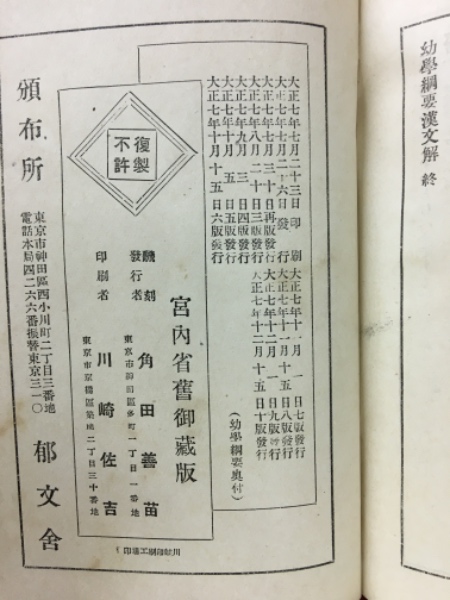 幼學綱要漢文解 終
大正七年七月二十三日印刷
大正七年七月二十六日發行
大正七年七月三十日再版發行
大正七年八月二十日三版發行
大正七年九月三日四版發行
大正七年十月五日五版發行
大正七年十月十五日六版發行
大正七年十一月一日七版發行
大正七年十一月十五日八版發行
大正七年十二月一日九版發行
大正七年十二月十五日十版發行
(幼學綱要奧付)
復製不許
宮內省舊御藏版
飜刻發行者 角田善苗
東京市神田區多町一丁目一番地
印刷者 川崎佐吉
東京市京橋區築地二丁目三十番地
川崎印刷工塲印行
頒布所 東京市神田區西小川町二丁目三番地 郁文舍
電話本局四二六六番振替東京三一〇